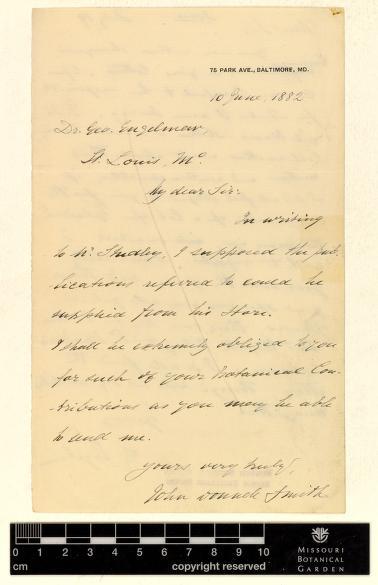 75 PARK AVE., BALTIMORE, MD.
10 June, 1882
Dr. Geo. Engelmann,
St. Louis, Mo.
My dear Sir:
In writing
to Mr. Studley, I supposed the pub-
lications referred to could be
supplied from his store.
I shall be extremely obliged to you
for such of your Botanical Con-
tributions as you may be able
to send me.
Yours very truly,
John Donnell Smith
0 1 2 3 4 5 6 7 8 9 10
cm
copyright reserved
MISSOURI
BOTANICAL
GARDEN